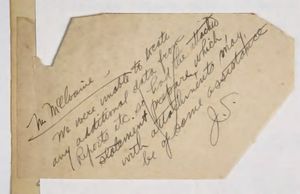 Mr McIlvaine -
We were unable to locate
any additional data from
reports etc. so had the attached
statement prepare, which
with attachments may
be of some assistance
J.S.